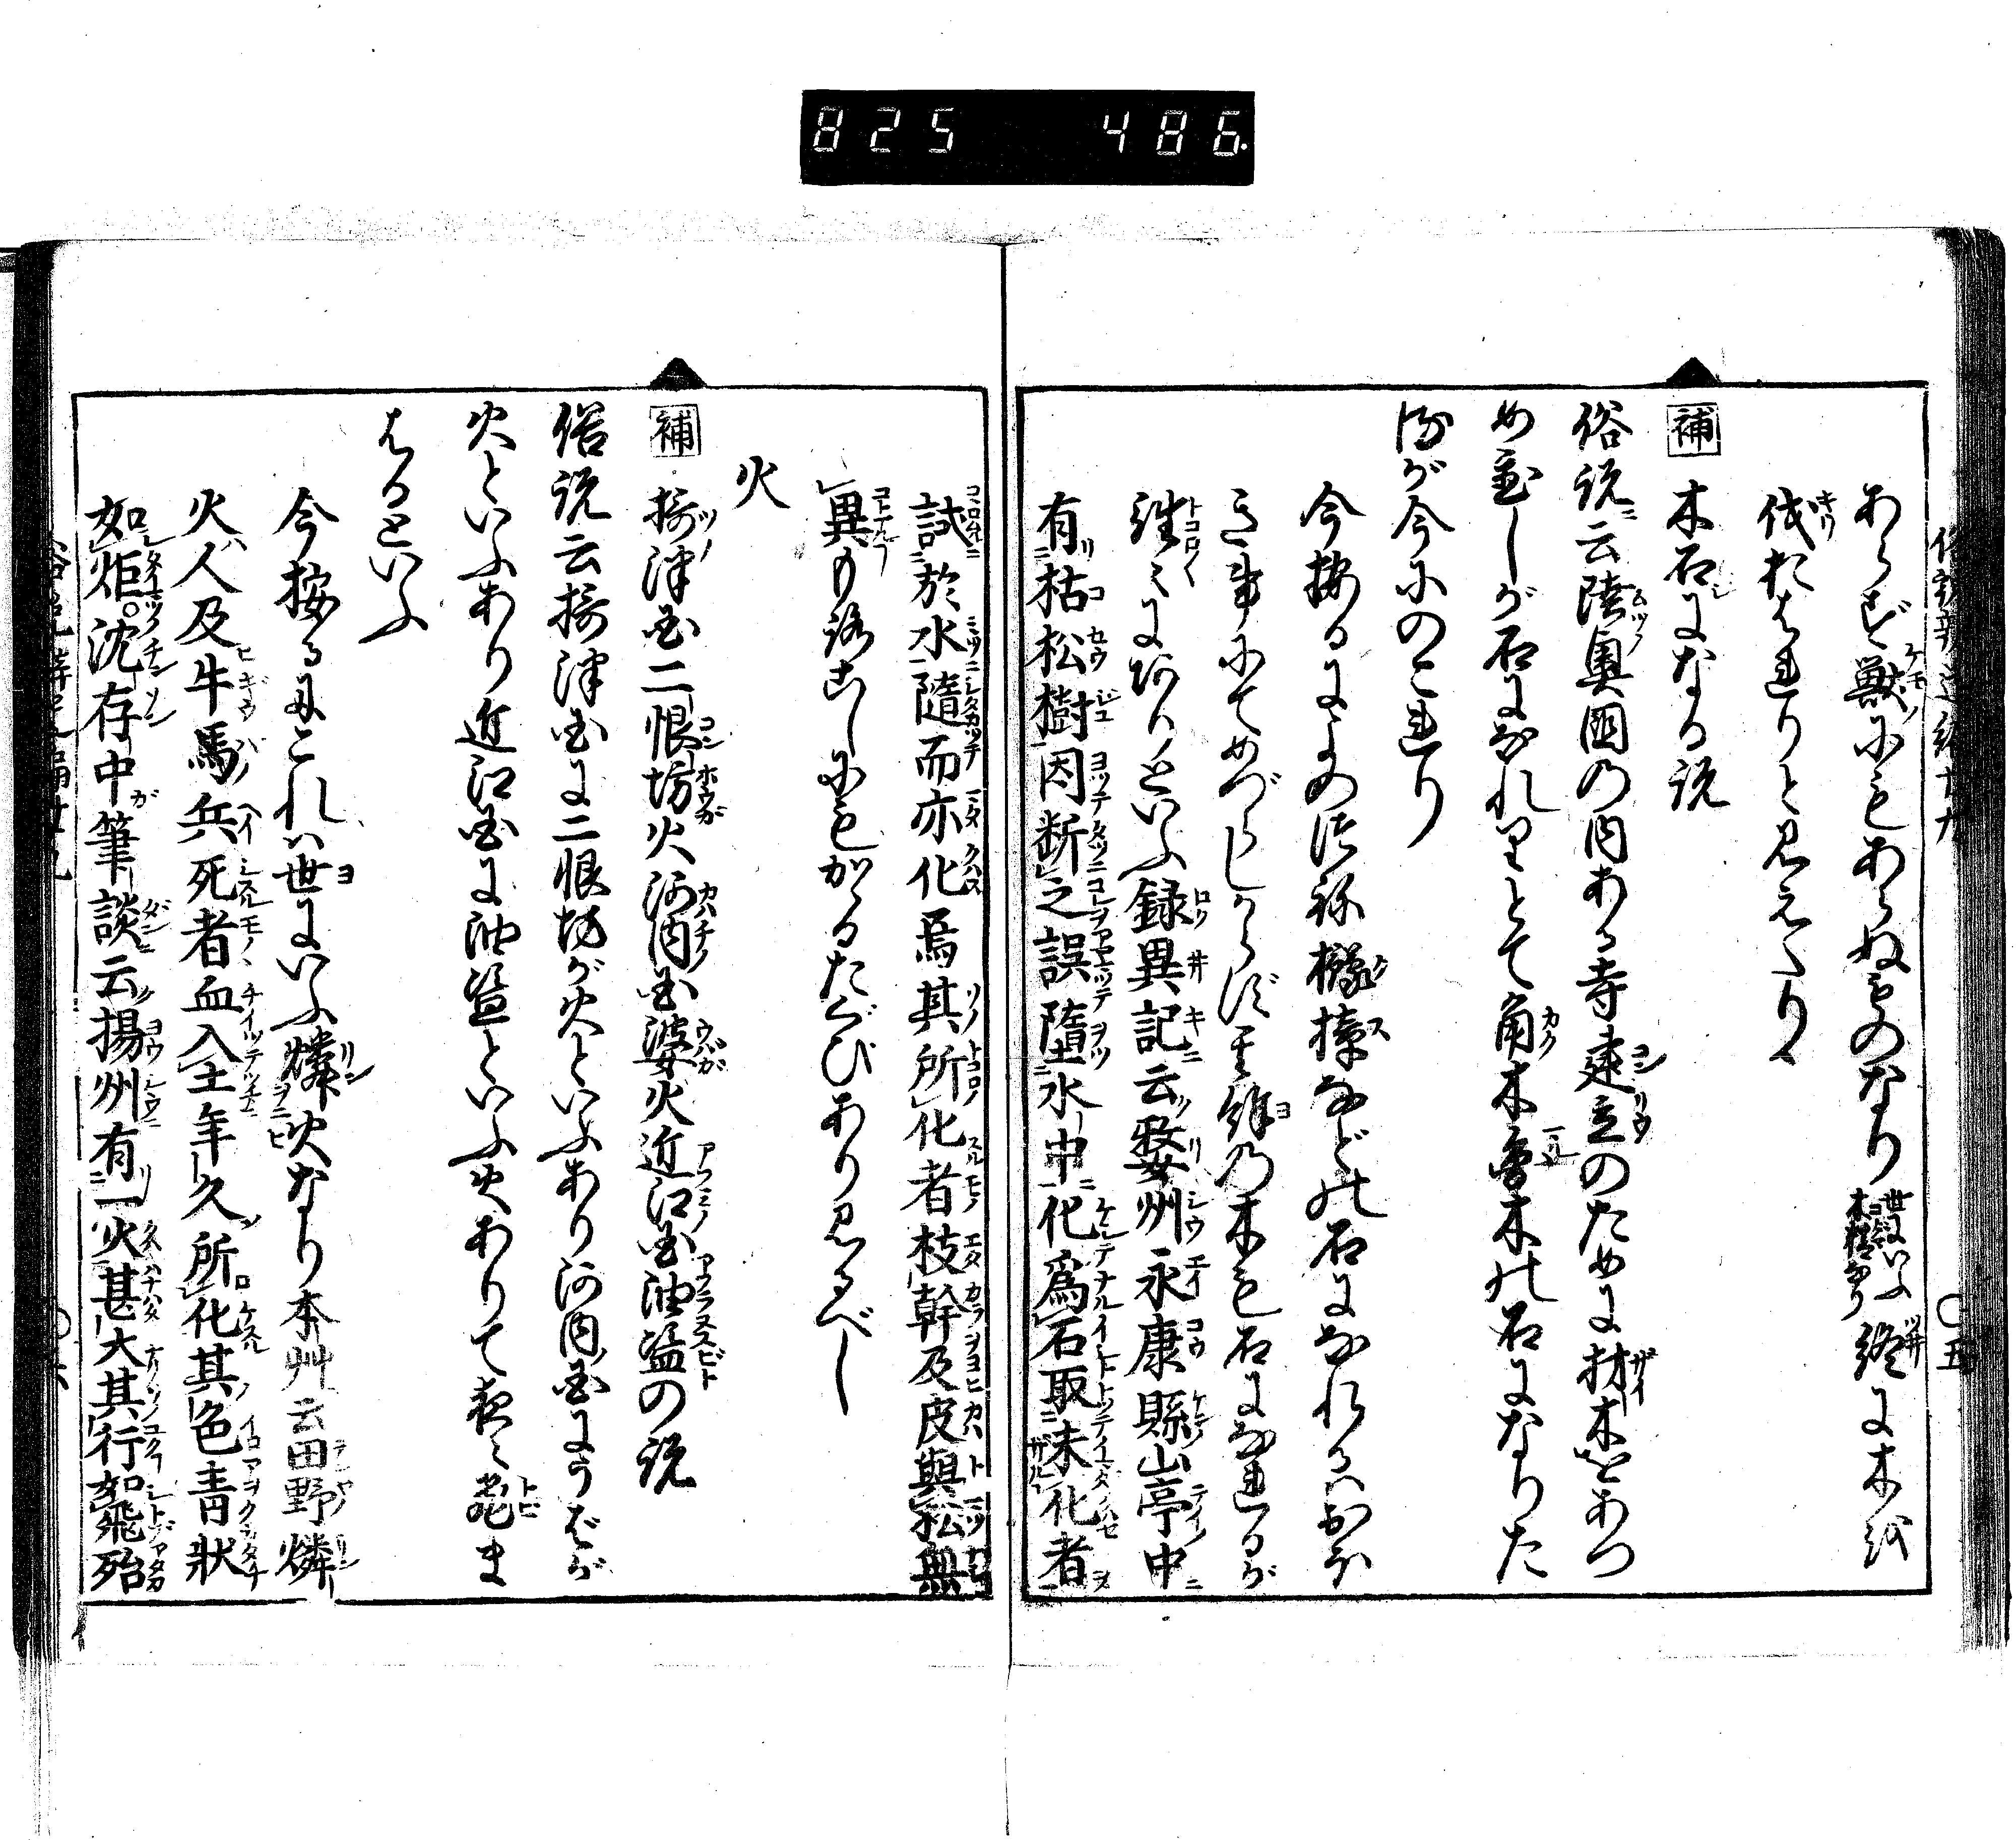 825 486
あらず獣にもあらぬものなり世にいふ木精なり終に木を
伐たふれりと見えたり
補 木石になる説
俗説云陸奥国の内ある寺建立のために材木をあつ
め置しが石になれりとて角木
木の石になりた
るが今にのこれり
今按るに
などの石になれるは
き事にてめづらしからず其余の木も石になれるが
にありといふ録異記云婺州永康縣山亭中
有枯松樹因断之誤墮水中化為石取未化者
試於水隨而亦化焉其所化者枝幹及皮與松無
異
にもかゝるたぐひあり見るべし
火
補 摂津国二恨坊火河内国婆火近江国油盗の説
俗説云摂津国に二恨坊が火といふあり河内国にうばが
火といふあり近江国に油盗といふ火ありて夜々飛ま
はるといふ
今按るにこれは世にいふ燐火なり本艸云田野燐
火人及牛馬兵死者血入土年久所化其色青狀
如炬沈存中筆談云揚州有一火甚大其行如飛殆